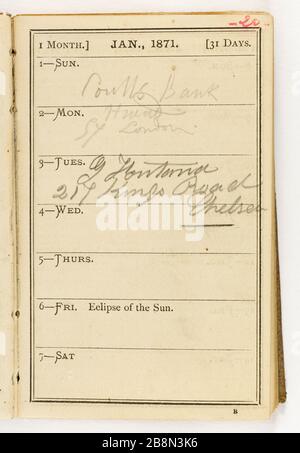 1 MONTH.] JAN., 1871. [31 DAYS.
1—SUN.
Coutts Bank
2—MON.
London
3—TUES.
G
Kings Road
4—WED. Chelsea
5—THURS.
6—FRI. Eclipse of the Sun.
7—SAT
B
alamy
2BN8N3K6